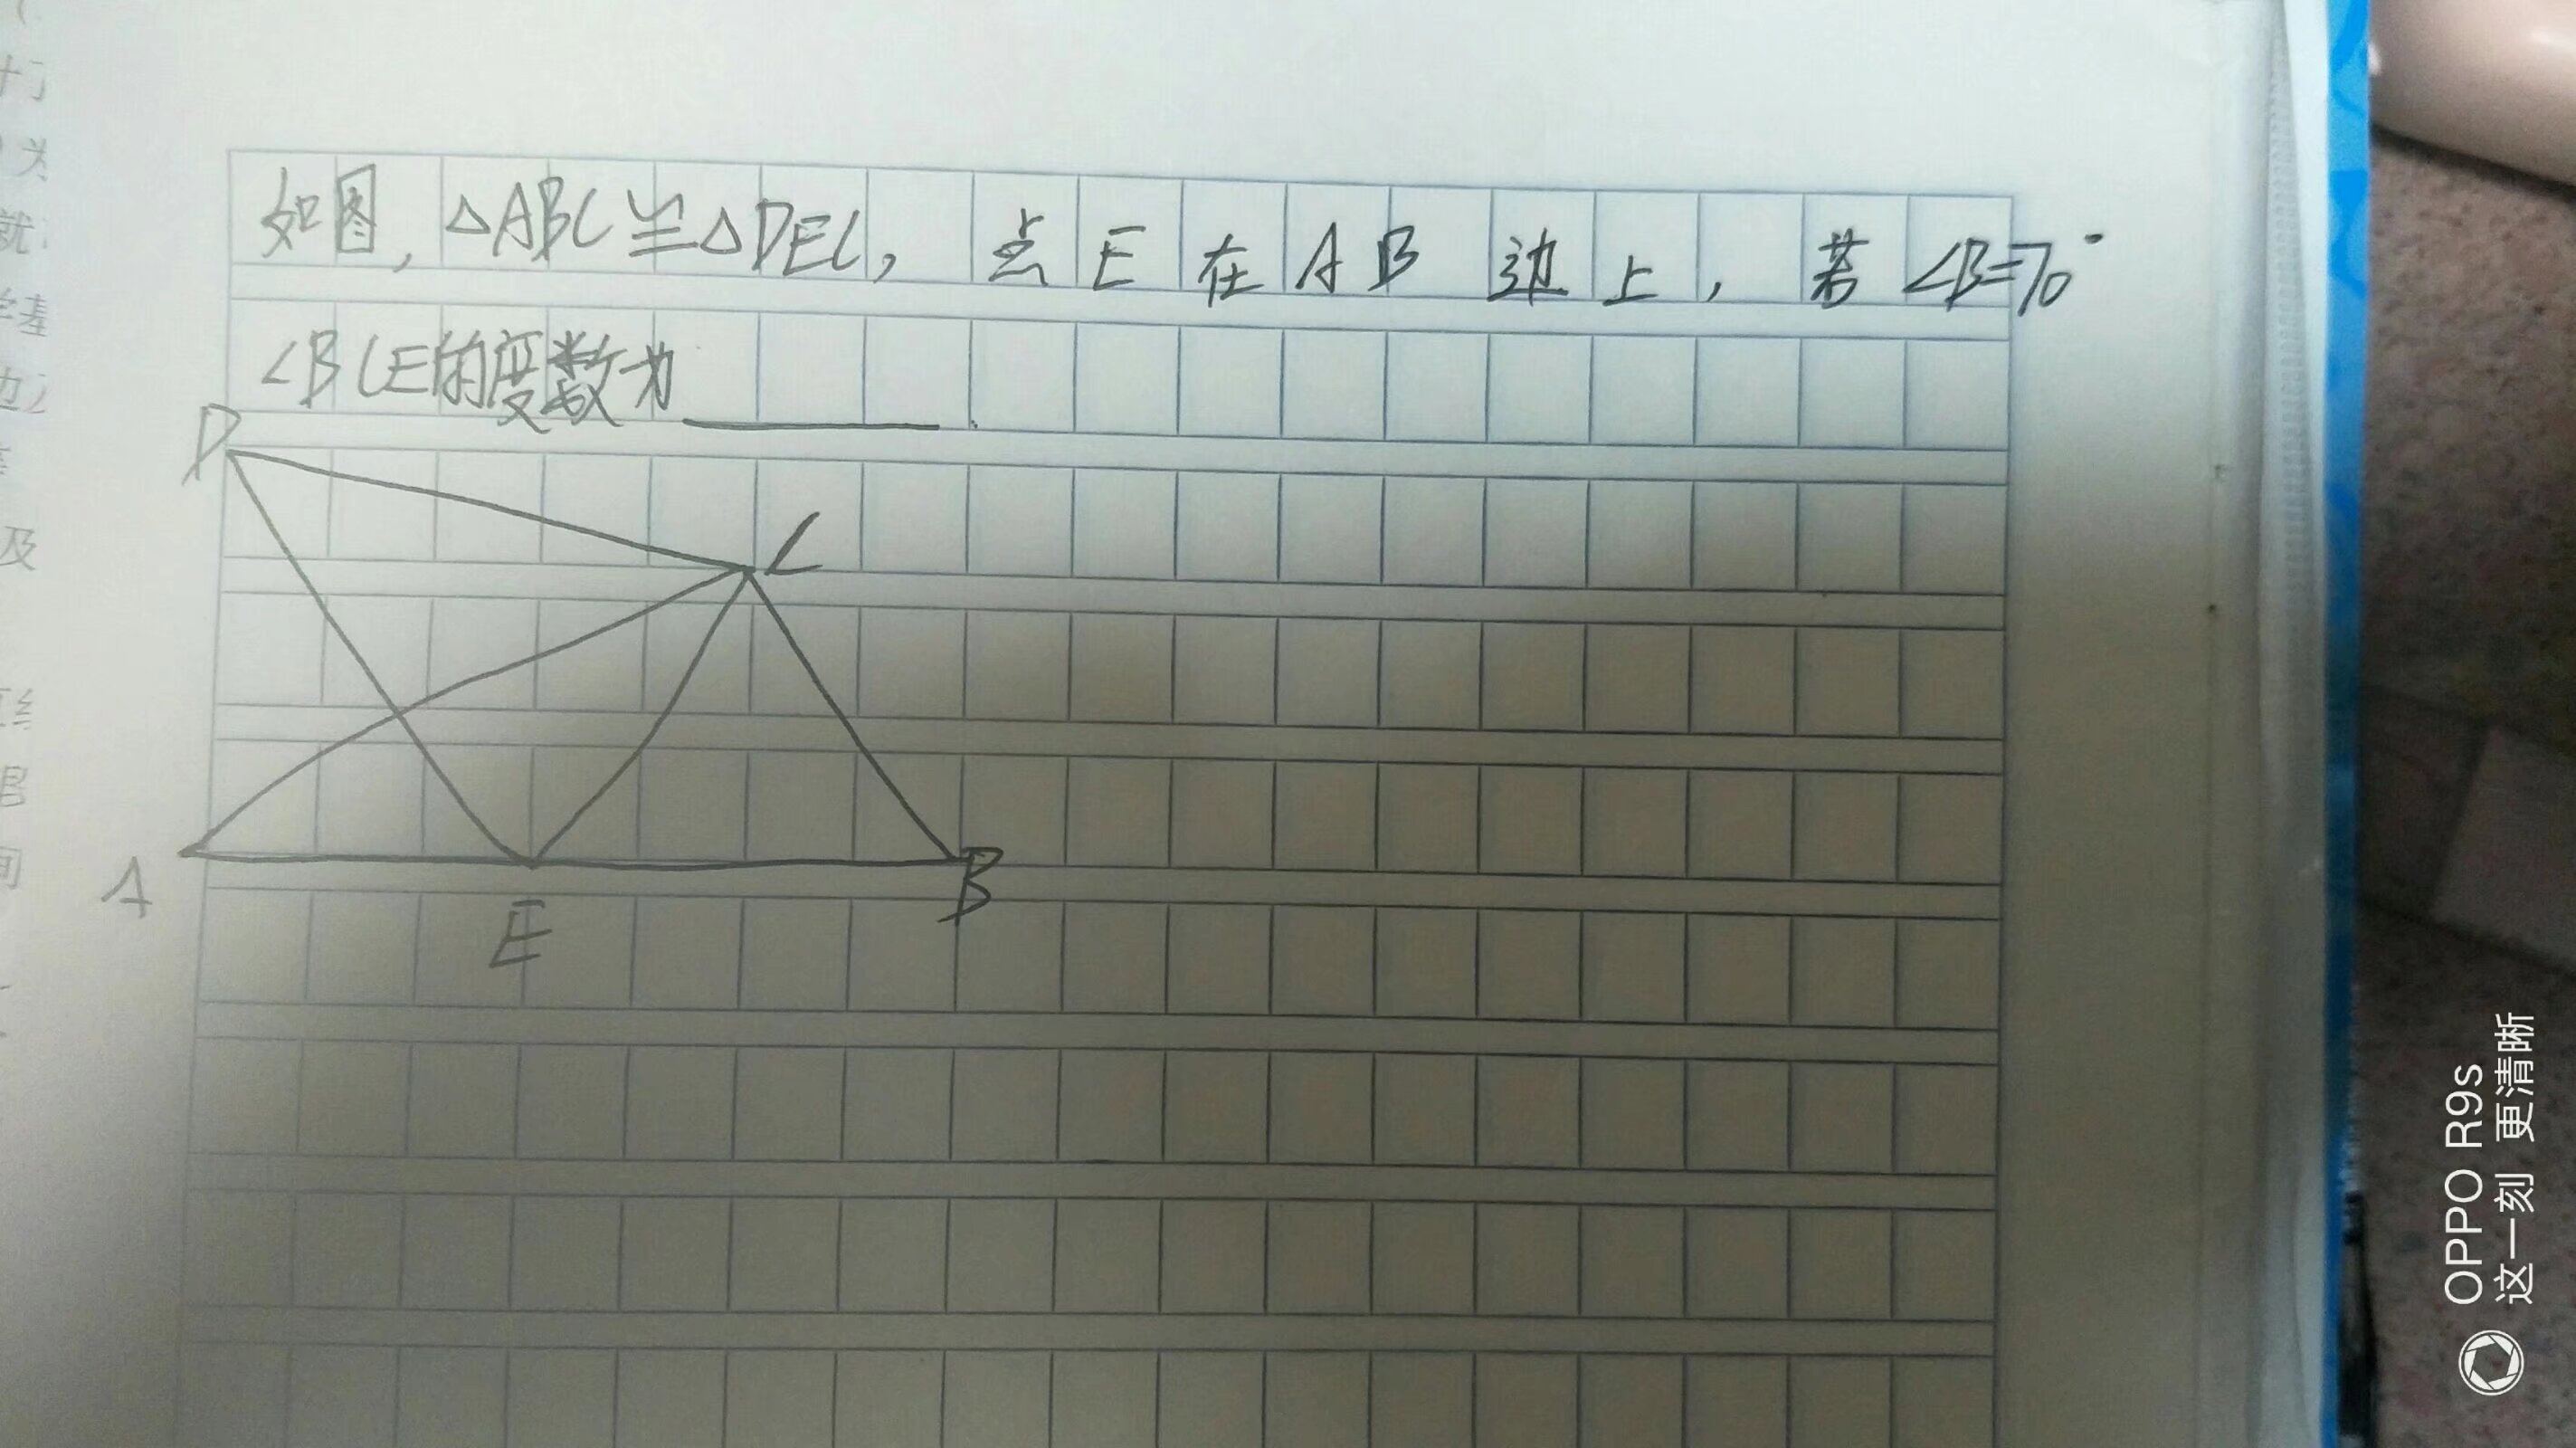 如图,△ABC≌△DEC,点E在AB边上,若∠B=70°
∠BCE的度数为______.
D
C
A
E
B
OPPO R9s
这一刻 更清晰